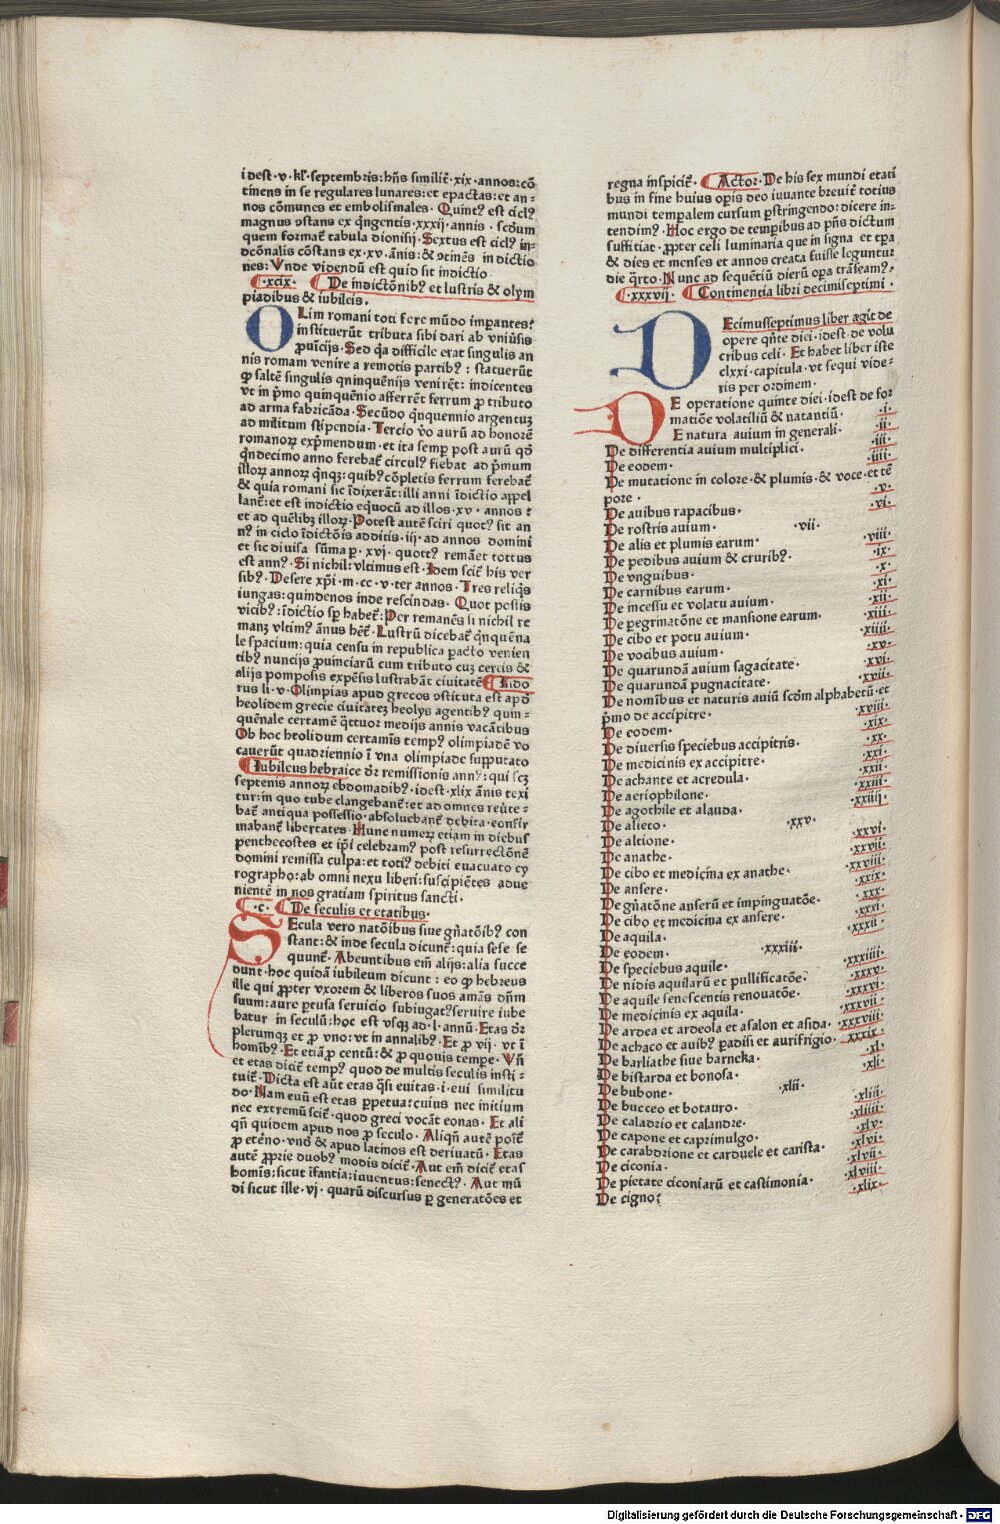 idest·v·kl̄·septembris:hñs similiť·xix·annos:cō
tinens in se regulares lunares:et epactas:et an=
nos cōmunes et embolismales·Quintꝰ est ciclꝰ
magnus ꝯstans ex qͥngentis·xxxij·annis·scđum
quem formať tabula dionisij·Sextus est ciclꝰ in=
dcōnalis cōstans ex·xv·ānis:& ꝯtinēs in dictio
nes:Vnde videndū est quid sit indictio·
·xcix· De indictōnibꝰ et lustris & olym
piadibus & iubileis.
OLim romani toti fere mūdo imperantes:
instituerūt tributa sibi dari ab vniūsis
ꝓuīcijs·Sed qͥa difficile erat singulis an
nis romam venire a remotis partibꝰ:statuerūt
ꝙ saltē singulis qninquēnijs venirēt:indicentes
vt in pͥmo quinquēnio afferrēt ferrum ꝓ tributo
ad arma fabricāda·Secūdo qͥnquennio argentuꝫ
ad militum stipendia·Tercio v̄o aurū ad honorē
romanoꝝ expͥmendum·et ita semꝑ post aurū qđ
qͥndecimo anno ferebať circulꝰ fiebat ad pͥmum
illoꝝ annoꝝ qͥnqꝫ:quibꝰ cōpletis ferrum ferebať
& quia romani sic īdixerāt:illi anni īdictio appel
lanť:et est indictio equocū ad illos·xv·annos ⁊
et ad quēlibꝫ illoꝝ·Potest autē sciri quotꝰ sit an
nꝰ in ciclo īdictōis additis·iij·ad annos domini
et sic diuisa sūma ꝑ·xvj·quottꝰ remāet tottus
est annꝰ·Si nichil:vltimus est·Idem sciť his ver
sibꝰ·Desere xp̄i·m·cc·v·ter annos·Tres reliqͥs
iungas:quindenos inde rescindas·Quot possis
vicibꝰ:īdictio sꝑ habeť:Per remanēs si nichil re
manꝫ vltimꝰ ānus heť·Lustrū dicebať qͥnquēna
le spacium:quia censu in republica pacto venien
tibꝰ nuncijs ꝓuinciarū cum tributo cuꝫ cereis &
alijs pomposis expēsis lustrabāt ciuitatē Isido
rus li·v·Olimpias apud grecos ꝯstituta est apđ
heolidem grecie ciuitateꝫ heolys agentibꝰ quin=
quēnale certamē qͣttuor medijs annis vacātibus
Ob hoc heolidum certamīs tempꝰ olimpiadē vo
cauerūt quadriennio ī vna olimpiade supputato
Iubileus hebraice dr̄ remissionis annꝰ:qui scꝫ
septenis annoꝝ ebdomadibꝰ·idest·xlix ānis texi
tur:in quo tube clangebanť:et ad omnes reūte=
bať antiqua possessio·absoluebanť debita·confir
mabanť libertates·Hunc numeꝝ etiam in diebus
penthecostes et ip̄i celebramꝰ post resurrectōnē
domini remissa culpa:et totiꝰ debiti euacuato cy
rographo:ab omni nexu liberi:suscipiētes adue
nientē in nos gratiam spiritus sancti·
·c· De seculis et etatibus·
SEcula vero natōibus siue gn̄atōibꝰ con
stant:& inde secula dicunť:quia sese se
quunť·Abeuntibus em̄ alijs:alia succe
dunt·hoc quidā iubileum dicunt:eo ꝙ hebreus
ille qui ꝓpter vxorem & liberos suos amās dn̄m
suum:aure ꝑtusa seruicio subiugatꝰ seruire iube
batur in seculū:hoc est vsqꝫ ad·l·annū·Etas dr̄
plerumqꝫ et ꝓ vno:vt in annalibꝰ·Et ꝓ vij·vt ī
homībꝰ·Et etiā ꝓ centū:& ꝓ quouis tempe·Vn̄
et etas diciť tempꝰ quod de multis seculis insti=
tuiť·Dicta est aūt etas qͣsi euitas·i·eui similitu
do·Nam euū est etas ꝑpetua:cuius nec initium
nec extremū sciť·quod greci vocāt eonas·Et ali
qn̄ quidem apud nos ꝓ seculo·Aliqn̄ autē poiť
ꝓ etēno·vnđ & apud latinos est deriuatū·Etas
autē ꝓprie duobꝰ modis diciť·Aut em̄ diciť etas
homīs:sicut īfantia:iuuentus:senectꝰ·Aut mū
di sicut ille·vj·quarū discursus ꝑ generatōes et
regna inspiciť· Actor·De his sex mundi etati
bus in fine huius opis deo iuuante breuiť totius
mundi tempalem cursum ꝑstringendo:dicere in=
tendimꝰ·Hoc ergo de tempibus ad pn̄s dictum
suffitiat·ꝓpter celi luminaria que in signa et tp̄a
& dies et menses et annos creata fuisse leguntur
die qͣrto·Nunc ad sequētiū dierū opa trāseamꝰ.
·xxxvij· Continentia libri decimiseptimi·
DEcimusseptimus liber agit de
opere qn̄te diei·idest·de volu
cribus celi·Et habet liber iste
clxxi·capitula·vt sequi vide=
ris per ordinem·
DE operatione quinte diei·idest de for
matiōe volatiliū & natantiū· ·i·
E natura auium in generali· ·ii·
De differentia auium multiplici· ·iii·
De eodem· ·iiii·
De mutatione in colore·& plumis·& voce·et tē
pore· ·v·
De auibus rapacibus· ·vi·
De rostris auium· ·vii·
De alis et plumis earum· ·viii·
De pedibus auium & cruribꝰ· ·ix·
De vnguibus· ·x·
De carnibus earum· ·xi·
De incessu et volatu auium· ·xii·
De pegrimatōne et mansione earum· ·xiii·
De cibo et potu auium· ·xiiii·
De vocibus auium· ·xv·
De quarundā auium sagacitate· ·xvi·
De quarundā pugnacitate· ·xvii·
De nomībus et naturis auiū scđm alphabetū·et
pͥmo de accipitre· ·xviii·
De eodem· ·xix·
De diuersis speciebus accipitris· ·xx·
De medicinis ex accipitre· ·xxi·
De achante et acredula· ·xxii·
De aeriophilone· ·xxiii·
De agothile et alauda· ·xxiiij·
De alieto· ·xxv·
De altione· ·xxvi·
De anathe· ·xxvii·
De cibo et medicina ex anathe· ·xxviii·
De ansere· ·xxix·
De gn̄atōne anserū et impinguatōe· ·xxx·
De cibo et medicina ex ansere· ·xxxi·
De aquila· ·xxxii·
De eodem· ·xxxiii·
De speciebus aquile· ·xxxiiii·
De nidis aquilarū et pullificatōe· ·xxxv·
De aquile senescentis renouatōe· ·xxxvi·
De medicinis ex aquila· ·xxxvii·
De ardea et ardeola et asalon et asida· ·xxxviii·
De achaco et auibꝰ ꝑadisi et aurifrigio· ·xxxix·
De barliathe siue barneka· ·xl·
De bistarda et bonosa· ·xli·
De bubone· ·xlii·
De bucceo et botauro· ·xliii·
De caladrio et calandre· ·xliiii·
De capone et caprimulgo· ·xlv·
De carabdrione et carduele et carista· ·xlvi·
De ciconia· ·xlvii·
De pietate ciconiarū et castimonia· ·xlviii·
De cigno: ·xlix·
Digitalisierung gefördert durch die Deutsche Forschungsgemeinschaft - DFG